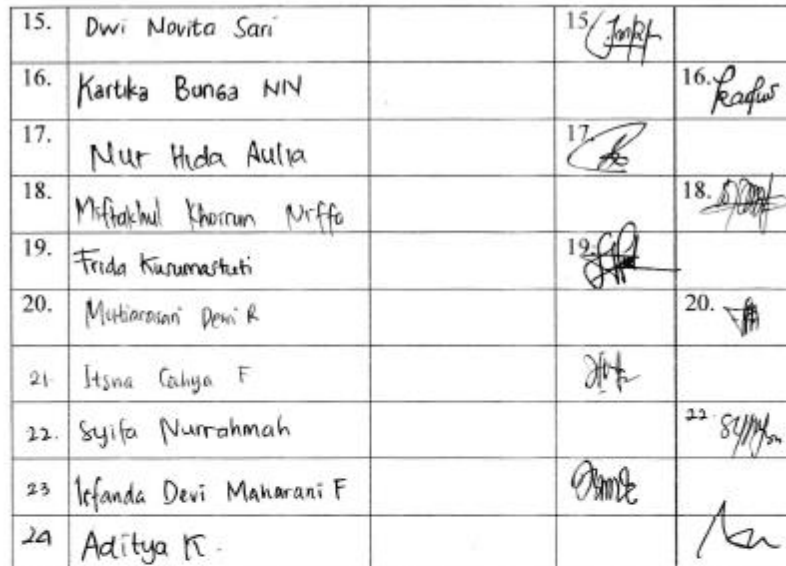 15. Dwi Novita Sari 15
16. Kartika Bunga NN 16.
17. Nur Hida Aulia 17.
18. Miftakhul Khoirun 18.
19. Frida Kusumastuti 19.
20. Dewi R 20.
21. Itsna Cahya F
22. Syifa Nurrohmah 22.
23 Devi Maharani F
24 Aditya K.